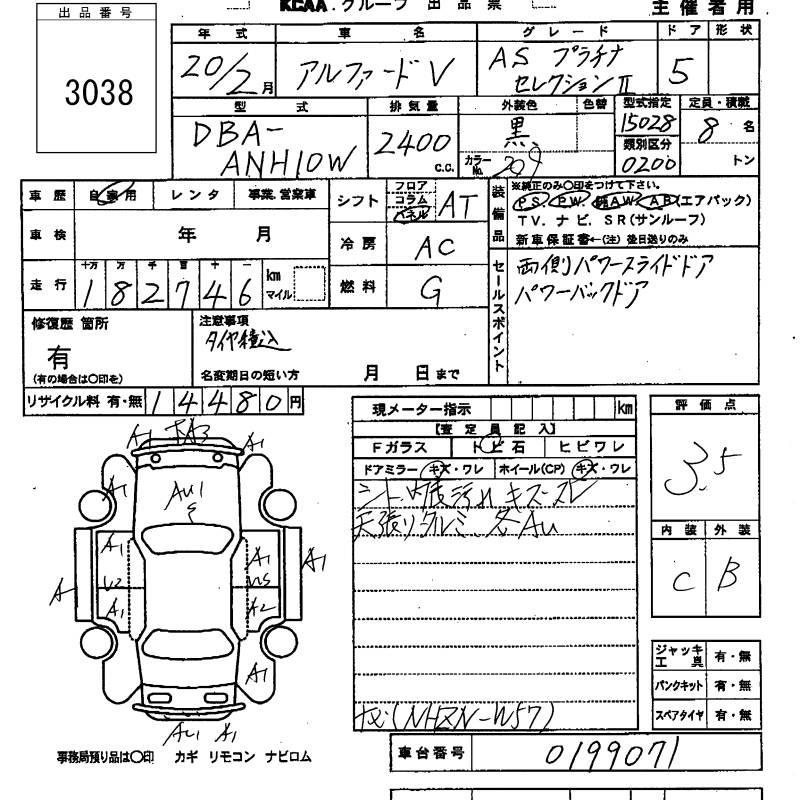 KCAA.グループ 出品票
主催者用
出品番号
3038
年式 車名 グレード ドア 形状
20/2月 アルファードV AS プラチナ セレクションⅡ 5
型式 排気量 外装色 色替 型式指定 定員・積載
DBA-ANH10W 2400 C.C. 黒 15028 8名
カラーNo. 209 類別区分 0200 トン
車歴 自家用 レンタ 事業.営業車
車検 年 月
走行 十万 万 千 百 十 一 182746 km マイル
シフト フロア コラム パネル AT
冷房 AC
燃料 G
装備品 ※純正のみ○印をつけて下さい。
PS. PW. 純AW. AB(エアバック)
TV. ナビ. SR(サンルーフ)
新車保証書←(注) 後日送りのみ
セールスポイント
両側パワースライドドア
パワーバックドア
修復歴 箇所
有
(有の場合は○印を)
注意事項
タイヤ積込
名変期日の短い方 月 日まで
リサイクル料 有・無 14480円
現メーター指示 km
【査定員記入】
Fガラス トビ石 ヒビワレ
ドアミラー キズ・ワレ ホイール(CP) キズ・ワレ
シート 内装汚れ キズ・スレ
天張りタルミ、各AU
ナビ(NHZN-W57)
評価点
3.5
内装 外装
C B
ジャッキ工具 有・無
パンクキット 有・無
スペアタイヤ 有・無
A1 A3 A1
A1 AU1 A1
A1 A1
A U2 U5 A1
A1 A2
A1
AU1 A1
事務局預り品は○印 カギ リモコン ナビロム
車台番号 0199071